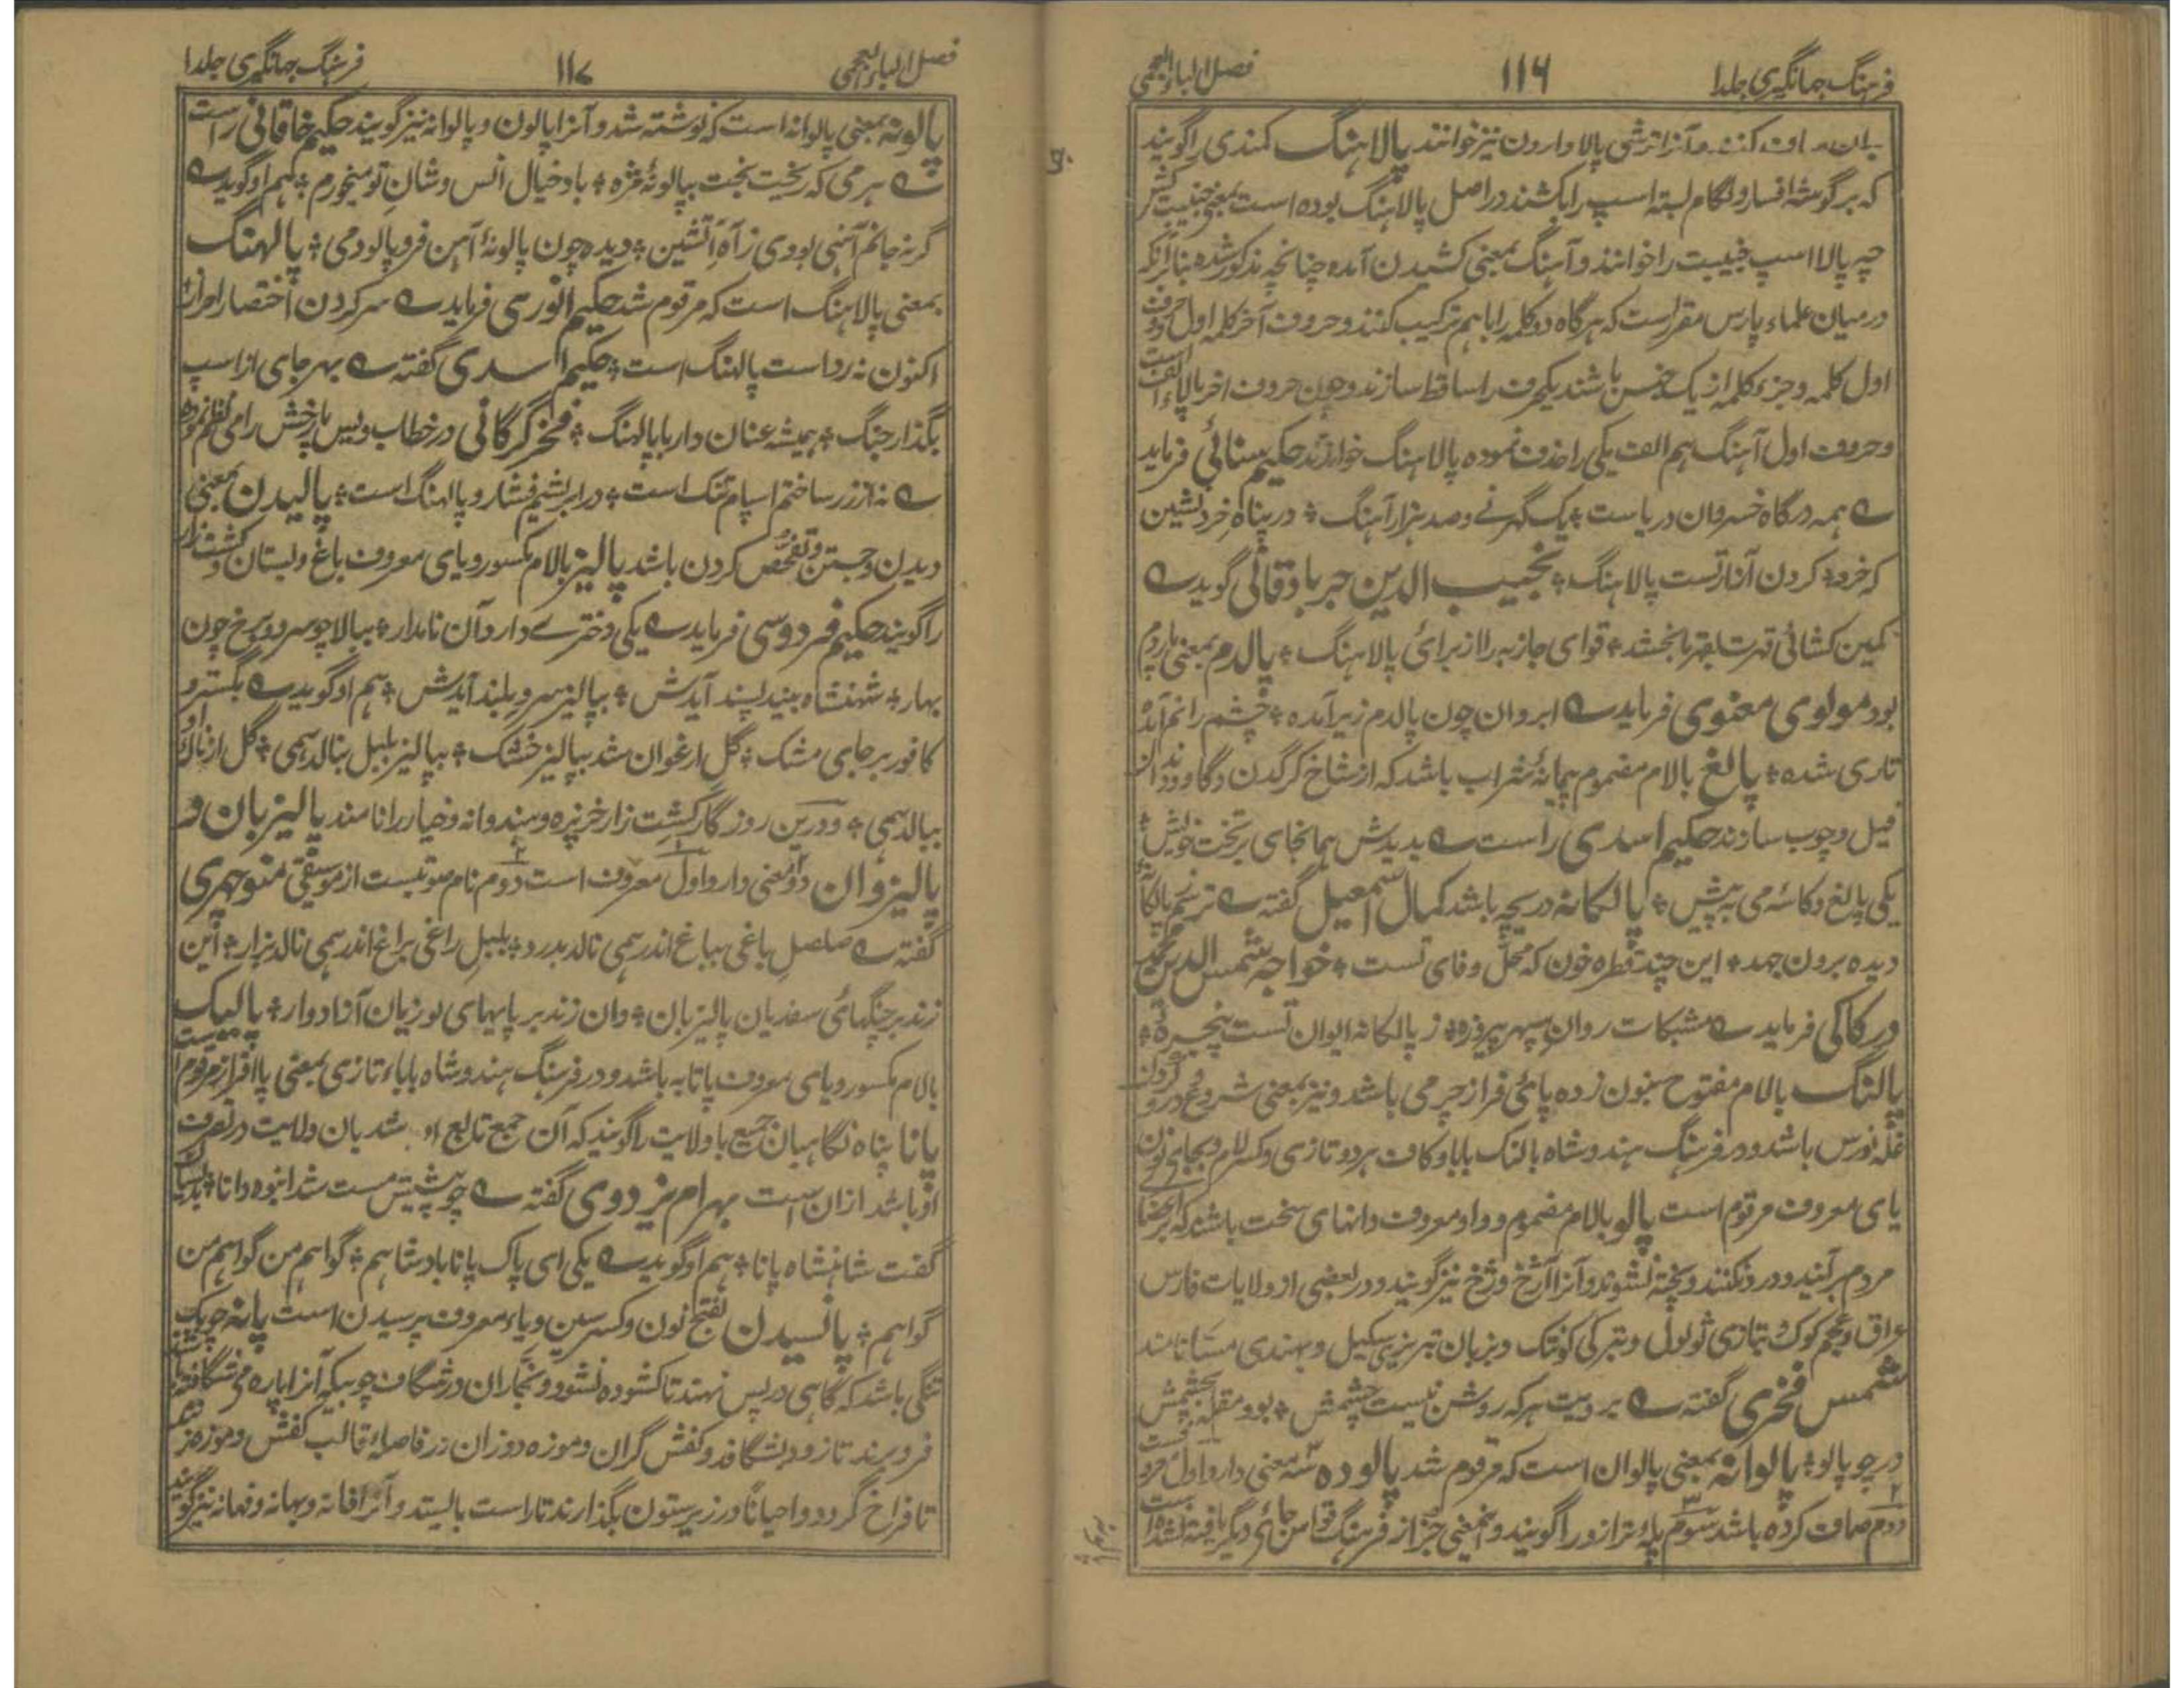 فرهنگ جهانگیری جلد۱
۱۱۶
فصل الباء العجمی
صاف کنند و آنرا ترشی پالا و ارون نیز خوانند پالاهنگ کمندی را گویند
که برگوشه افسار و لگام بسته اسپ را بکشند در اصل پالاهنگ بوده است بمعنی جنیبت کش
چه پالا اسپ جنیبت را خوانند و آهنگ بمعنی کشیدن آمده چنانچه مذکور شده بنابر آنکه
درمیان علماء پارس مقرر است که هرگاه دو کلمه را باهم ترکیب کنند و حروف آخر کلمه اول و حروف
اول کلمه و جزء کلمه از یک جنس باشند یکحرف را ساقط سازند و چون حروف اخر پالا الف است
و حروف اول آهنگ هم الف یکی را حذف نموده پالاهنگ خوانند حکیم سنائی فرماید
ے همه درگاه خسروان دریاست ؞ یک گهر نے و صد هزار آهنگ ؞ در پناه خرد نشین
که خرد ؞ گردن آز راست پالاهنگ ؞ نجیب الدین جرباذقانی گوید ے
کمین کشائی قهرت بقهر بخشد ؞ قوای جاذبه را از برای پالاهنگ ؞ پالدم بمعنی پاردم
بود مولوی معنوی فرماید ے ابروان چون پالدم زیر آمده ؞ چشم را نم آمده
تاری شده ؞ پالغ بالام مضموم پیمانهٔ شراب باشد که از شاخ کرگدن و گاو و دندان
فیل و چوب سازند حکیم اسدی راست ے بدیدش همانجای بر تخت خویش ؞
یکی پالغ و کاسهٔ می به پیش ؞ پالکانه دریچه باشد کمال اسمعیل گفته ے ترسم ز پالکانه
دیده برون جهد ؞ این چند قطره خون که محل وفای تست ؞ خواجه شمس الدین محمد
ورکاکی فرماید ے مشبکات روان سپهر پیروزه ؞ ز پالکانه ایوان تست پنجرهٔ ؞
پالنگ بالام مفتوح بنون زده پائی فراز چرمی باشد و نیز بمعنی شروع در درو کردن
غلّه نورس باشد و در فرهنگ هندوشاه بالنک بابا و کاف هر دو تازی و کسر لام و بجای نون
یای معروف مرقوم است پالو بالام مضموم و واو معروف دانهای سخت باشد که بر اعضا
مردم برآیند و درد نکنند و پخته نشوند و آنرا آزخ و زخ نیز گویند و در بعضی از ولایات فارس
عراق و عجم کوک بتازی ثولول و بترکی کونتک و بزبان تبریزی سکیل و بهندی مسّا نامند
شمس فخری گفته ے بر رویت هر که روشن نیست چشمش ؞ بود مقله بچشمش
در چو پالو ؞ پالوانه بمعنی پالوان است که مرقوم شد پالوده سه معنی دارد اول معروفست
دوم صاف کرده باشد سوم پلهٔ ترازو را گویند و بمعنی جز از فرهنگ قواس جائی دیگر یافته نشده است
فصل الباء العجمی
۱۱۷
فرهنگ جهانگیری جلد۱
پالونه بمعنی پالوانه است که نوشته شد و آنرا پالون و پالوانه نیز گویند حکیم خاقانی راست
ے هر می که ریخت بخت بپالونهٔ مژه ؞ باد خیال انس و شان تو میخورم ؞ هم او گوید ے
گرنه جانم آهنی بودی ز آه آتشین ؞ دیده چون پالونهٔ آهن فرو پالودمی ؞ پالهنگ
بمعنی پالاهنگ است که مرقوم شد حکیم انوری فرماید ے سرکردن اختصار احرار
اکنون نه رداست پالهنگ است ؞ حکیم اسدی گفته ے بهر جای از اسپ
بگذار جنگ ؞ همیشه عنان دار با پالهنگ ؞ فخر گرگانی در خطاب ویس بارخش رامین نظم نموده
ے نه از زر ساختم اسپام تنگ است ؞ در ابریشم فشار و پالهنگ است ؞ پالیدن بمعنی
دیدن و جستن و تفحّص کردن باشد پالیز بالام مکسور و یای معروف باغ و بستان و کشت زار
را گویند حکیم فردوسی فرماید ے یکی دختر ے دارد آن نامدار ؞ ببالا چو سرو و برخ چون
بهار ؞ شهنشاه بیند پسند آیدش ؞ بپالیز سرو بلند آیدش ؞ هم او گوید ے بگسترد
کافور بر جای مشک ؞ گل ارغوان شد بپالیز خشک ؞ بپالیز بلبل بنالد همی ؞ گل از ناله او
ببالد همی ؞ و درین روزگار کشت زار خرپزه و هندوانه و خیار را نامند پالیزبان و
پالیزوان دو معنی دارد اول معروف است دوم نام صوتیست از موسیقی منوچهری
گفته ے صلصل باغی بباغ اندر همی نالد بدرد ؞ بلبل راغی براغ اندر همی نالد بزار ؞ این
زند بر چنگهای سغدیان پالیزبان ؞ وان زند بر پایهای لوزیان آزادوار ؞ پالیک
بالام مکسور و یای معروف پاتابه باشد و در فرهنگ هندوشاه باباء تازی بمعنی پاافزار مرقوم است
پانا پناه نگاهبان جمیع با ولایت را گویند که آن جمع تابع او باشد یا آن ولایت در تصرف
او باشد ازان است بهرام یزدوی گفته ے چو پیشتش مست شد انبوه دانا ؞
گفت شاهنشاه پانا ؞ هم او گوید ے یکی ای پاک پانا پادشاهم ؞ گواهم من گواهم من
گواهم ؞ پانسیدن بفتح نون و کسر سین و یاء معروف پرسیدن است پانه چوبک
تنگی باشد که گاهی در پس نهند تا کشوده نشود و نجّاران در شگاف چوبیکه آنرا پاره می شگافند
فرو برند تا زود بشگافد و کفش گران و موزه دوزان در فاصلهٔ قالب کفش و موزه نیز
تا فراخ گردد و احیاناً در زیر ستون بگذارند تا راست بایستد و آنرا فانه و بهانه و فهانه نیز گویند